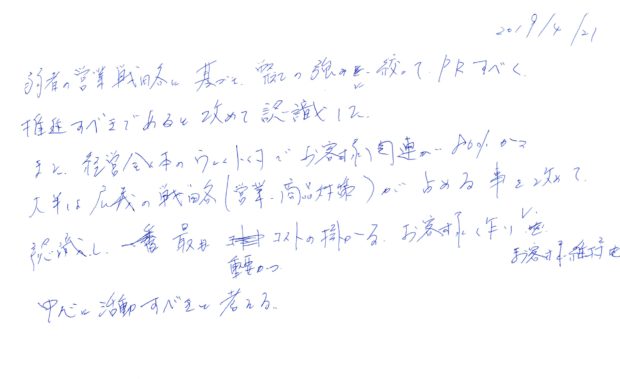 2019/4/21
弱者の営業戦略に基づき、弊社の強みを絞って、PRすべく
推進すべきであると改めて認識した。
また、経営全体のウェイト付でお客様関連が80%かつ
大半は広義の戦略(営業・商品対策)が占める事を改めて
認識し、最も重要かつコストの掛かるお客様作り、お客様維持を
中心に活動すべきと考える。